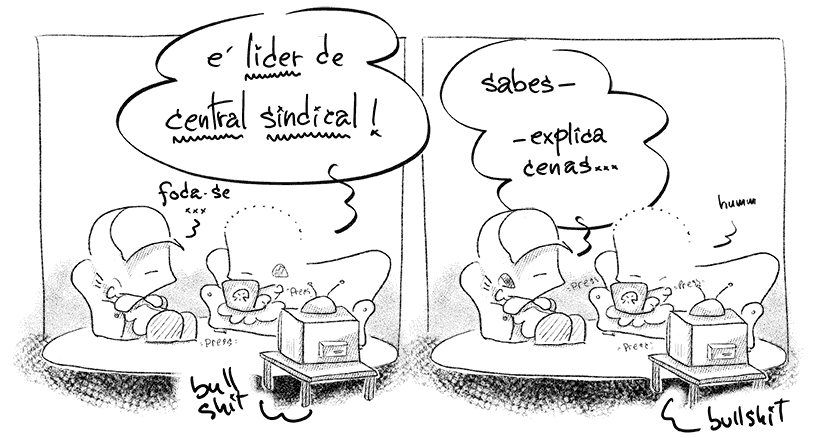 é líder de
central sindical!
foda-se
xxx
.Press
.Press.
bull
shit
sabes—
—explica
cenas...
humm
.Press
.Press.
.Press.
bullshit